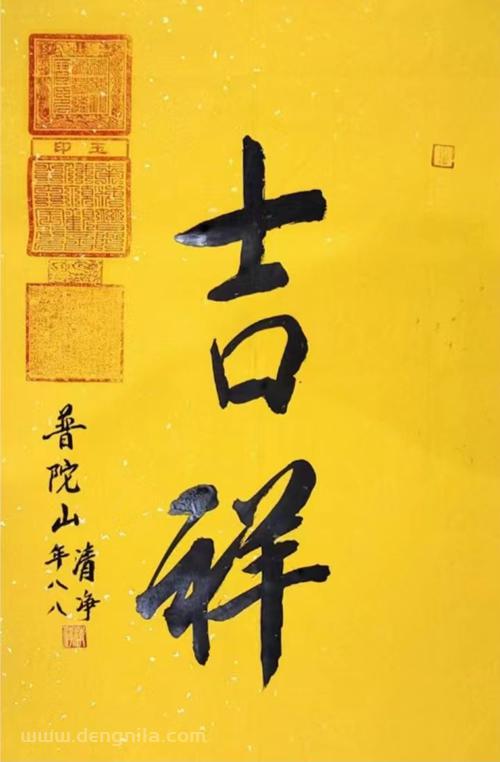 吉祥
普陀山
清净
年八八
玉印
www.dengnila.com